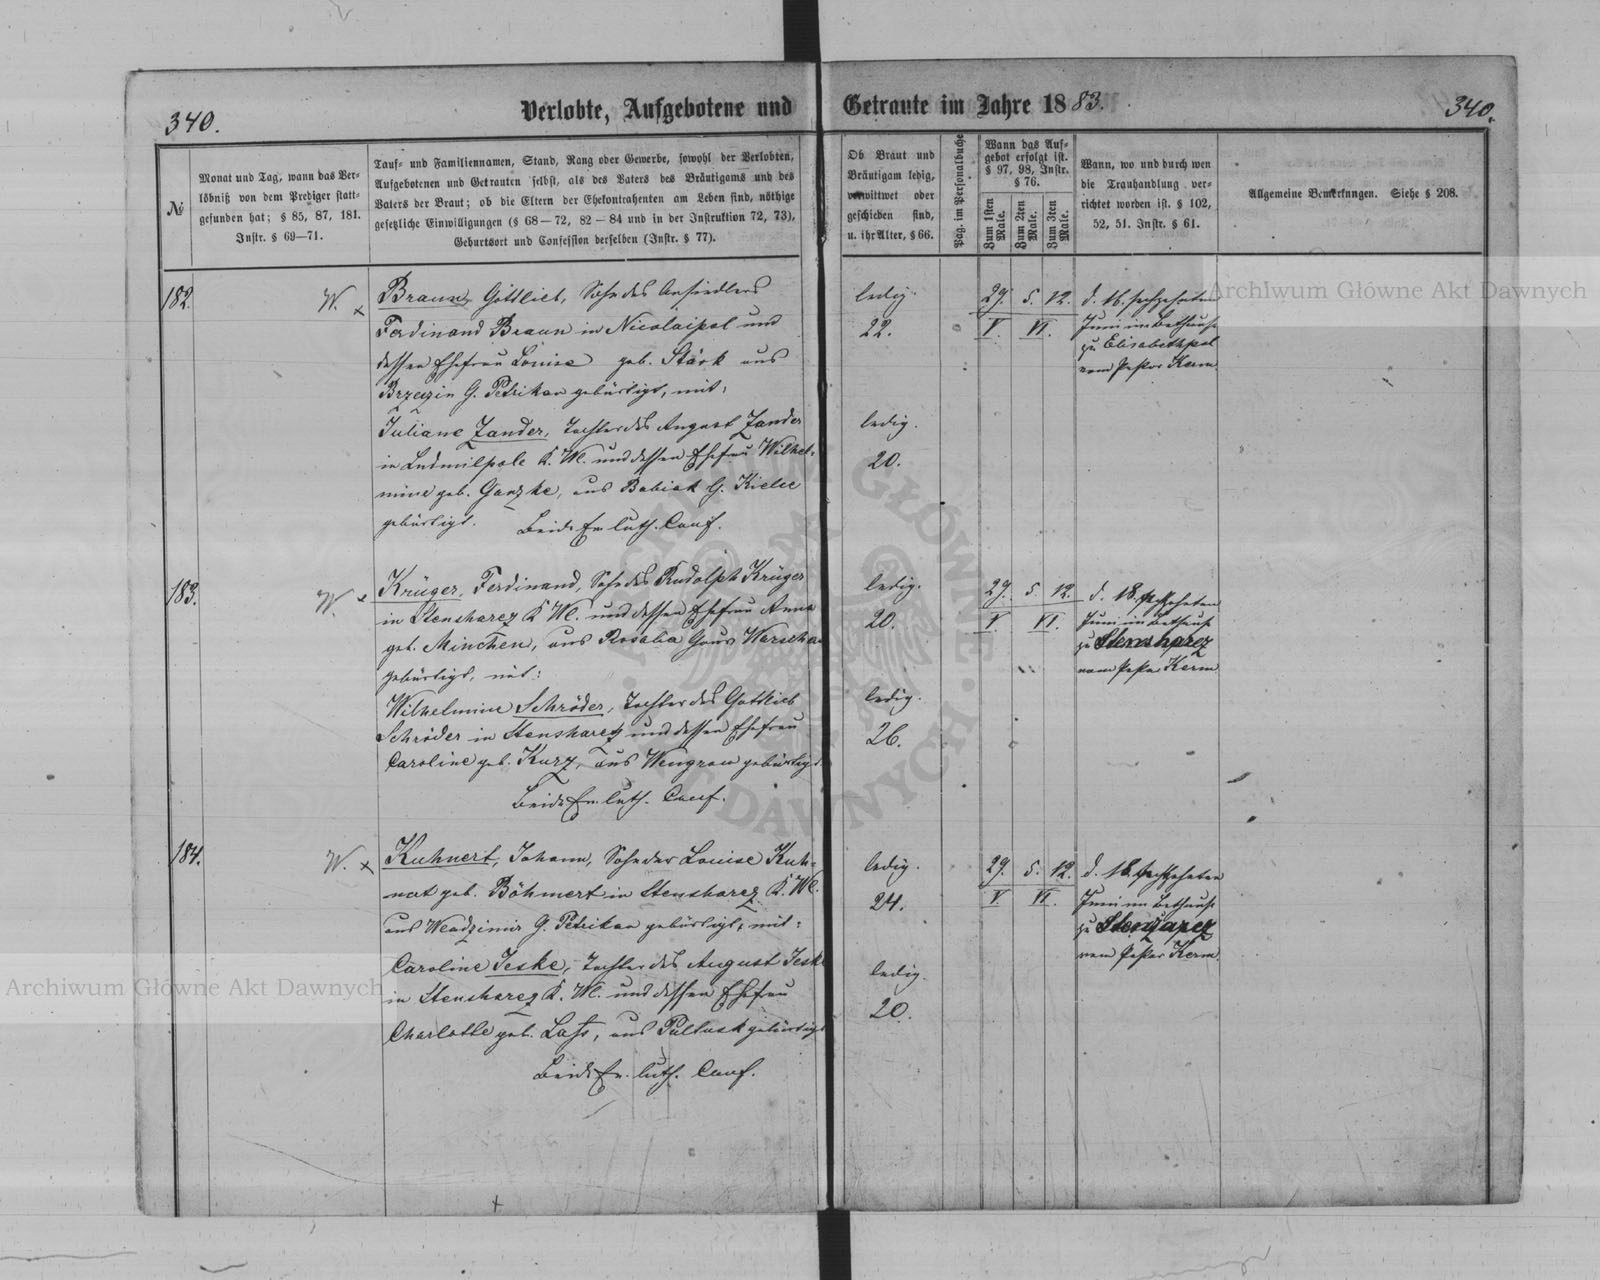 340.
Verlobte, Aufgebotene und Getraute im Jahre 1883.
340.
№
Monat und Tag, wann das Ver-
löbniß von dem Prediger statt-
gefunden hat; § 85, 87, 181.
Instr. § 69—71.
Tauf- und Familiennamen, Stand, Rang oder Gewerbe, sowohl der Verlobten,
Aufgebotenen und Getrauten selbst, als des Vaters des Bräutigams und des
Vaters der Braut; ob die Eltern der Ehekontrahenten am Leben sind, nöthige
gesetzliche Einwilligungen (§ 68—72, 82—84 und in der Instruktion 72, 73),
Geburtsort und Confession derselben (Instr. § 77).
Ob Braut und
Bräutigam ledig,
verwittwet oder
geschieden sind,
u. ihr Alter, § 66.
Pag. im Personalbuche
Wann das Auf-
gebot erfolgt ist.
§ 97, 98, Instr.
§ 76.
Zum 1sten
Male.
Zum 2ten
Male.
Zum 3ten
Male.
Wann, wo und durch wen
die Trauhandlung ver-
richtet worden ist. § 102,
52, 51. Instr. § 61.
Allgemeine Bemerkungen. Siehe § 208.
182.
W. x
Braun, Gottlieb, Sohn des Ansiedlers
Ferdinand Braun in Nicolaipol und
dessen Ehefrau Louise geb. Stärk aus
Brzezin G. Petrikau gebürtigt, mit:
Juliane Zander, Tochter des August Zander
in Ludmilpole K. Wl. und dessen Ehefrau Wilhel-
mine geb. Ganzke, aus Babiak G. Kielce
gebürtigt. Beide Ev. luth. Conf.
ledig.
22.
ledig.
20.
29. 5. 12.
V. VI.
d. 16. sechzehnten
Juni im Bethause
zu Elisabethpol
vom Pastor Kerm
183.
W. x
Krüger, Ferdinand, Sohn des Rudolph Krüger
in Stensharez K Wl. und dessen Ehefrau Anna
geb. Minchen, aus Rosalia Gouv Warschau
gebürtigt, mit:
Wilhelmine Schröder, Tochter des Gottlieb
Schröder in Stensharez und dessen Ehefrau
Caroline geb. Kurz, aus Wengrow gebürtigt.
Beide Ev. luth. Conf.
ledig.
20.
ledig.
26.
29. 5. 12.
V. VI.
d. 18. achtzehnten
Juni im Bethause
zu Stensharez
vom Pastor Kerm
184.
W. x
Kuhnert, Johann, Sohn der Louise Kuh-
nert geb. Böhmert in Stensharez K. Wl.
aus Wladzimir G. Petrikau gebürtigt, mit:
Caroline Jeske, Tochter des August Jeske
in Stensharez K. Wl. und dessen Ehefrau
Charlotte geb. Lass, aus Pultusk gebürtigt
Beide Ev. luth. Conf.
ledig.
24.
ledig.
20.
29. 5. 12.
V. VI.
d. 18. achtzehnten
Juni im Bethause
zu
vom Pastor Kerm
Archiwum Główne Akt Dawnych
Archiwum Główne Akt Dawnych